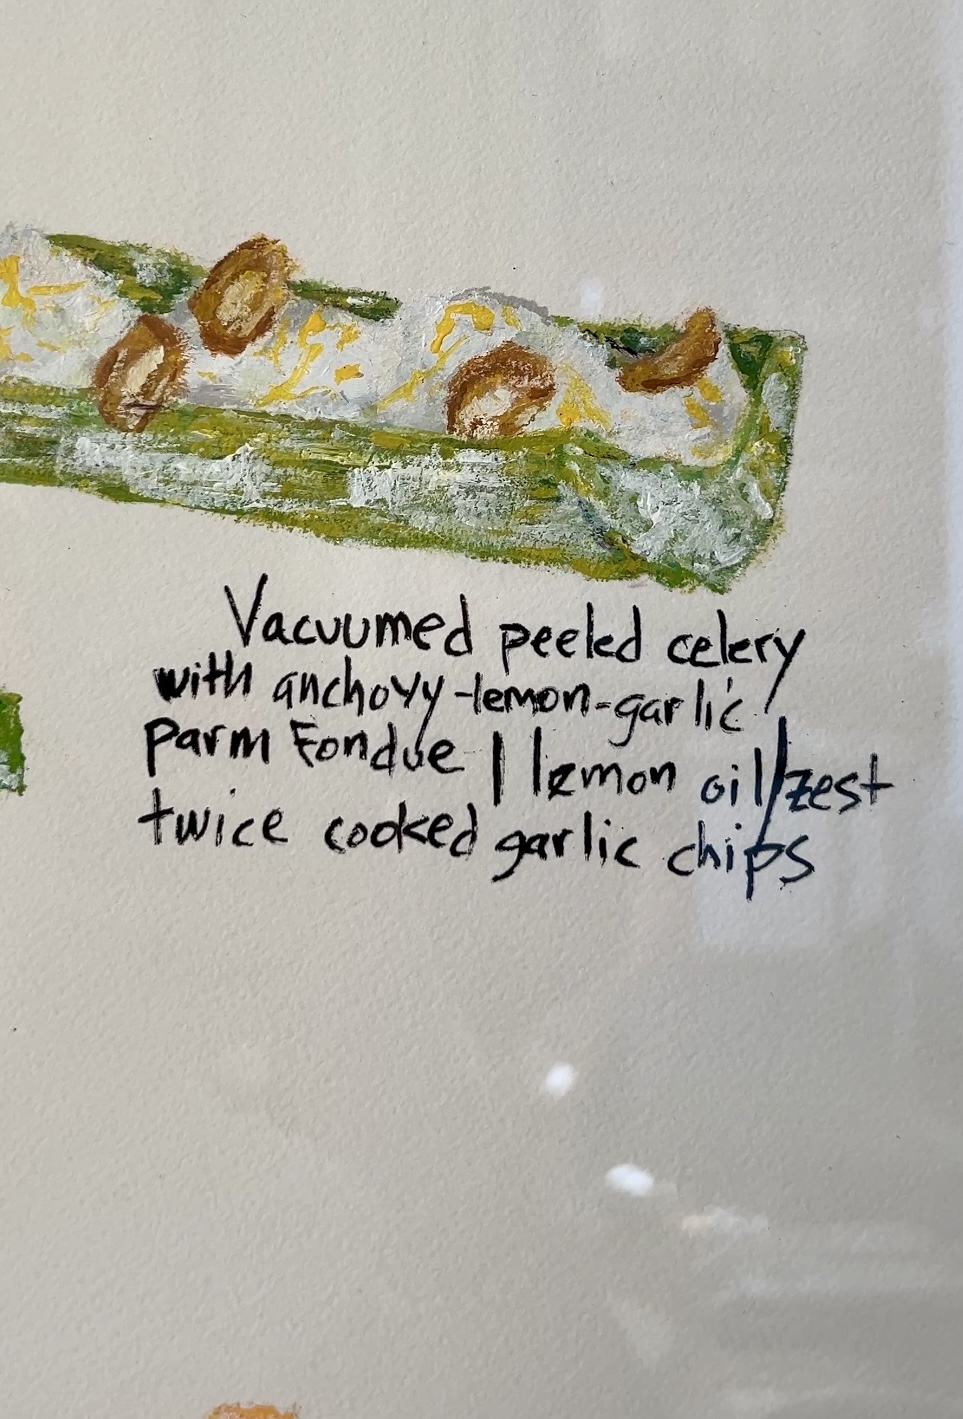 Vacuumed peeled celery
with anchovy-lemon-garlic
parm Fondue | lemon oil/zest
twice cooked garlic chips